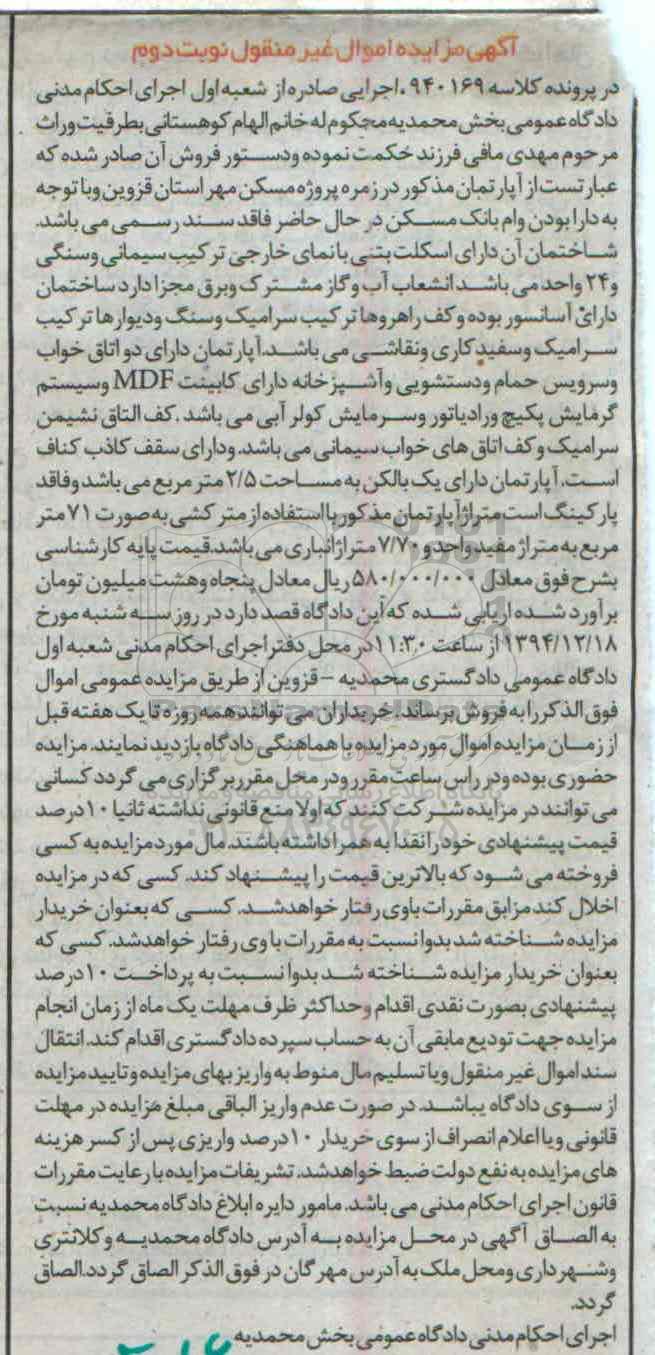 آگهی مزایده اموال غیر منقول نوبت دوم
در پرونده کلاسه ۹۴۰۱۶۹ ،اجرایی صادره از شعبه اول اجرای احکام مدنی
دادگاه عمومی بخش محمدیه محکوم له خانم الهام کوهستانی بطرفیت وراث
مرحوم مهدی مافی فرزند حکمت نموده ودستور فروش آن صادر شده که
عبارتست از آپارتمان مذکور در زمره پروژه مسکن مهر استان قزوین وبا توجه
به دارا بودن وام بانک مسکن در حال حاضر فاقد سند رسمی می باشد.
شاختمان آن دارای اسکلت بتنی با نمای خارجی ترکیب سیمانی وسنگی
و۲۴ واحد می باشد انشعاب آب و گاز مشترک وبرق مجزا دارد ساختمان
دارای آسانسور بوده و کف راهروها ترکیب سرامیک وسنگ ودیوارها ترکیب
سرامیک وسفید کاری ونقاشی می باشد.آپارتمان دارای دو اتاق خواب
وسرویس حمام ودستشویی وآشپزخانه دارای کابینت MDF وسیستم
گرمایش پکیج ورادیاتور وسرمایش کولر آبی می باشد .کف التاق نشیمن
سرامیک و کف اتاق های خواب سیمانی می باشد. ودارای سقف کاذب کناف
است. آپارتمان دارای یک بالکن به مساحت ۲/۵ متر مربع می باشد وفاقد
پارکینگ است متراژآپارتمان مذکور بااستفاده از متر کشی به صورت ۷۱ متر
مربع به متراژ مفید واحد و ۷/۷۰ متراژانباری می باشد.قیمت پایه کارشناسی
بشرح فوق معادل ۵۸۰/۰۰۰/۰۰۰ ریال معادل پنجاه وهشت میلیون تومان
برآورد شده ارزیابی شده که این دادگاه قصد دارد در روز سه شنبه مورخ
۱۳۹۴/۱۲/۱۸ از ساعت ۱۱:۳۰ در محل دفتر اجرای احکام مدنی شعبه اول
دادگاه عمومی دادگستری محمدیه – قزوین از طریق مزایده عمومی اموال
فوق الذکر را به فروش برساند. خریداران می توانند همه روزه تا یک هفته قبل
از زمان مزایده اموال مورد مزایده با هماهنگی دادگاه بازدید نمایند. مزایده
حضوری بوده ودر راس ساعت مقرر ودر محل مقرر برگزاری می گردد کسانی
می توانند در مزایده شرکت کنند که اولا منع قانونی نداشته ثانیا ۱۰ درصد
قیمت پیشنهادی خود را نقدا به همراداشته باشند. مال مورد مزایده به کسی
فروخته می شود که بالاترین قیمت را پیشنهاد کند. کسی که در مزایده
اخلال کند مزابق مقررات باوی رفتار خواهدشد. کسی که بعنوان خریدار
مزایده شناخته شد بدوا نسبت به مقررات با وی رفتار خواهدشد. کسی که
بعنوان خریدار مزایده شناخته شد بدوا نسبت به پرداخت ۱۰ درصد
پیشنهادی بصورت نقدی اقدام وحداکثر ظرف مهلت یک ماه از زمان انجام
مزایده جهت تودیع مابقی آن به حساب سپرده دادگستری اقدام کند. انتقال
سند اموال غیر منقول ویا تسلیم مال منوط به واریز بهای مزایده وتایید مزایده
از سوی دادگاه یباشد. در صورت عدم واریز الباقی مبلغ مزایده در مهلت
قانونی ویا اعلام انصراف از سوی خریدار ۱۰ درصد واریزی پس از کسر هزینه
های مزایده به نفع دولت ضبط خواهدشد. تشریفات مزایده با رعایت مقررات
قانون اجرای احکام مدنی می باشد. مامور دایره ابلاغ دادگاه محمدیه نسبت
به الصاق آگهی در محل مزایده به آدرس دادگاه محمدیه و کلانتری
وشهرداری ومحل ملک به آدرس مهرگان در فوق الذکر الصاق گردد.الصاق
گردد.
اجرای احکام مدنی دادگاه عمومی بخش محمدیه